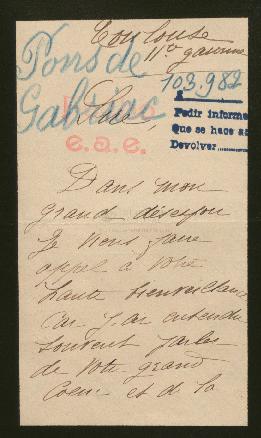 Toulouse
Hte garonne
Pons de
Gabriac
103.982
Sire,
e.a.e.
Pedir informe
Que se hace a
Devolver
Dans mon
grand désespoir
Je viens faire
appel à votre
haute bienveillance
Car j'ai entendu
souvent parler
de votre grand
Coeur et de la